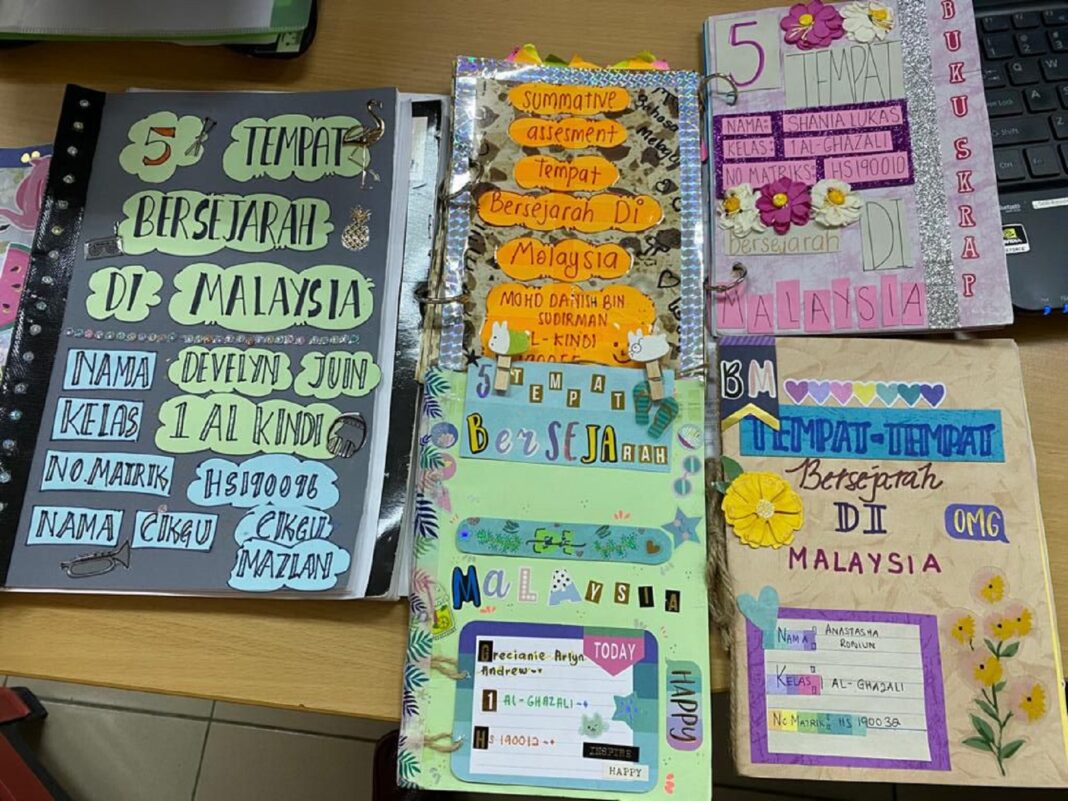 5 TEMPAT
BERSEJARAH
DI MALAYSIA
NAMA DEVELYN JUIN
KELAS 1 AL KINDI
NO.MATRIK HS190096
NAMA CIKGU CIKGU
MAZLAN
summative
assesment
Tempat
Bersejarah Di
Malaysia
Bahasa Melayu
MOHD DANISH BIN
SUDIRMAN
L-KINDI
5 TEMPAT
BerSEJARAH
MaLAYSIA
TODAY
Grecianie Arlyn
Andrew
1 AL-GHAZALI
Hs 190012
INSPIRE
HAPPY
HAPPY
5
TEMPAT
NAMA: SHANIA LUKAS
KELAS: 1 AL-GHAZALI
NO MATRIKS: HS190010
DI
Bersejarah
MALAYSIA
BUKU SKRAP
BM
TEMPAT-TEMPAT
Bersejarah
DI
OMG
MALAYSIA
NAMA: ANASTASHA
RONIUN
KELAS: 1 AL-GHAZALI
No MATRIK: HS 190032
NVIDIA